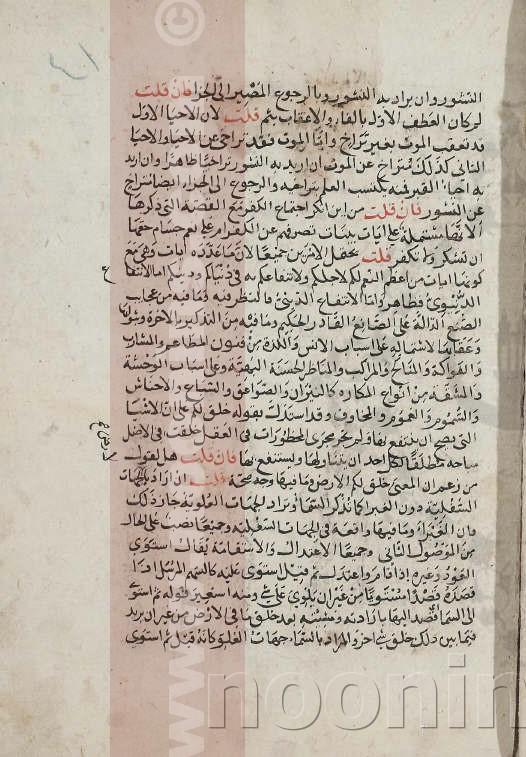 النشور وان يراد به النشور وبالرجوع المصير الى الجزا فان قلت
لم كان العطف الاول بالفاء والاعقاب بثم قلت لان الاحيا الاول
قد تعقب الموت بغير تراخ واما الموت فقد تراخى عن الاحيا والاحيا
الثانى كذلك متراخ عن الموت ان اريد به النشور تراخيا ظاهرا وان اريد
به احياء القبر فمنه يكتسب العلم بتراخيه والرجوع الى الجزاء ايضا متراخ
عن النشور فان قلت من اين انكر اجتماع الكفر مع القصة التى ذكرها
الانها مشتملة على ايات بينات تصرفهم عن الكفر ام على نعم جسام حقها
ان تشكر ولا تكفر قلت يحتمل الامرين جميعا لان ما عدده ايات وهى مع
كونها ايات من اعظم النعم لاجلكم ولانتفاعكم به فى دنياكم ودينكم اما الانتفاع
الدنيوى فظاهر واما الانتفاع الدينى فالنظر فيه وما فيه من عجايب
الصنع الدالة على الصانع القادر الحكيم وما فيه من التذكير بالاخرة وثوابها
وعقابها لاشتماله على اسباب الانس واللذة من فنون المطاعم والمشارب
والفواكه والمناكح والمراكب والمناظر الحسنة البهية وعلى اسباب الوحشة
والمشقة من انواع المكاره كالنيران والصواعق والسباع والاحناش
والسموم والغموم والمخاوف وقد استدل بقوله خلق لكم على ان الاشيا
التى يصح ان ينتفع بها ولم تجر مجرى المحظورات فى العقل خلقت فى الاصل
مباحة مطلقا لكل احد ان يتناولها ويستنفع بها فان قلت هل لقول
من زعم ان المعنى خلق لكم الارض وما فيها وجه صحة قلت ان اراد بالجهات
السفلية دون الغبرا كما تذكر السما ويراد الجهات العلوية جاز ذلك
فان الغبراء وما فيها واقعة فى الجهات السفلية وجميعا نصب على الحال
من الموصول الثانى وجميعا الاعتدال والاستقامة يقال استوى
العود وغيره اذا قام واعتدل ثم قيل استوى عليه كالسهم المرسل اذا
قصده قصدا مستويا من غير ان يلوى على شى ومنه استعير قوله ثم استوى
الى السما اى قصد اليها بارادته ومشيئته بعد خلق ما فى الارض من غير ان يريد
فيما بين ذلك خلق شى اخر والمراد بالسماء جهات العلو كانه قيل ثم استوى
www.noonin